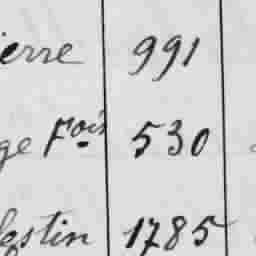 ierre 991
ge Fois 530
lestin 1785